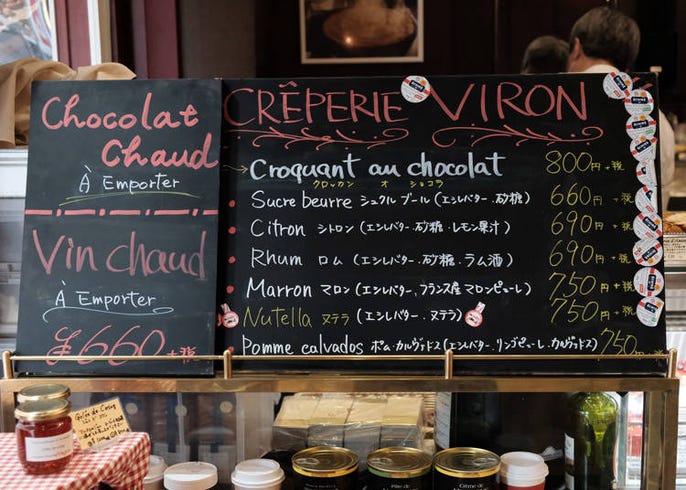 Chocolat
Chaud
À Emporter
Vin chaud
À Emporter
¥660+税
CRÊPERIE VIRON
Croquant au chocolat 800円+税
クロッカン オ ショコラ
Sucre beurre シュクルブール(エシレバター.砂糖) 660円+税
Citron シトロン(エシレバター.砂糖・レモン果汁) 690円+税
Rhum ロム(エシレバター.砂糖.ラム酒) 690円+税
Marron マロン(エシレバター.フランス産マロンピューレ) 750円+税
Nutella ヌテラ(エシレバター.ヌテラ) 750円+税
Pomme calvados ポム・カルヴァドス(エシレバター.リンゴピューレ.カルヴァドス) 750円+税